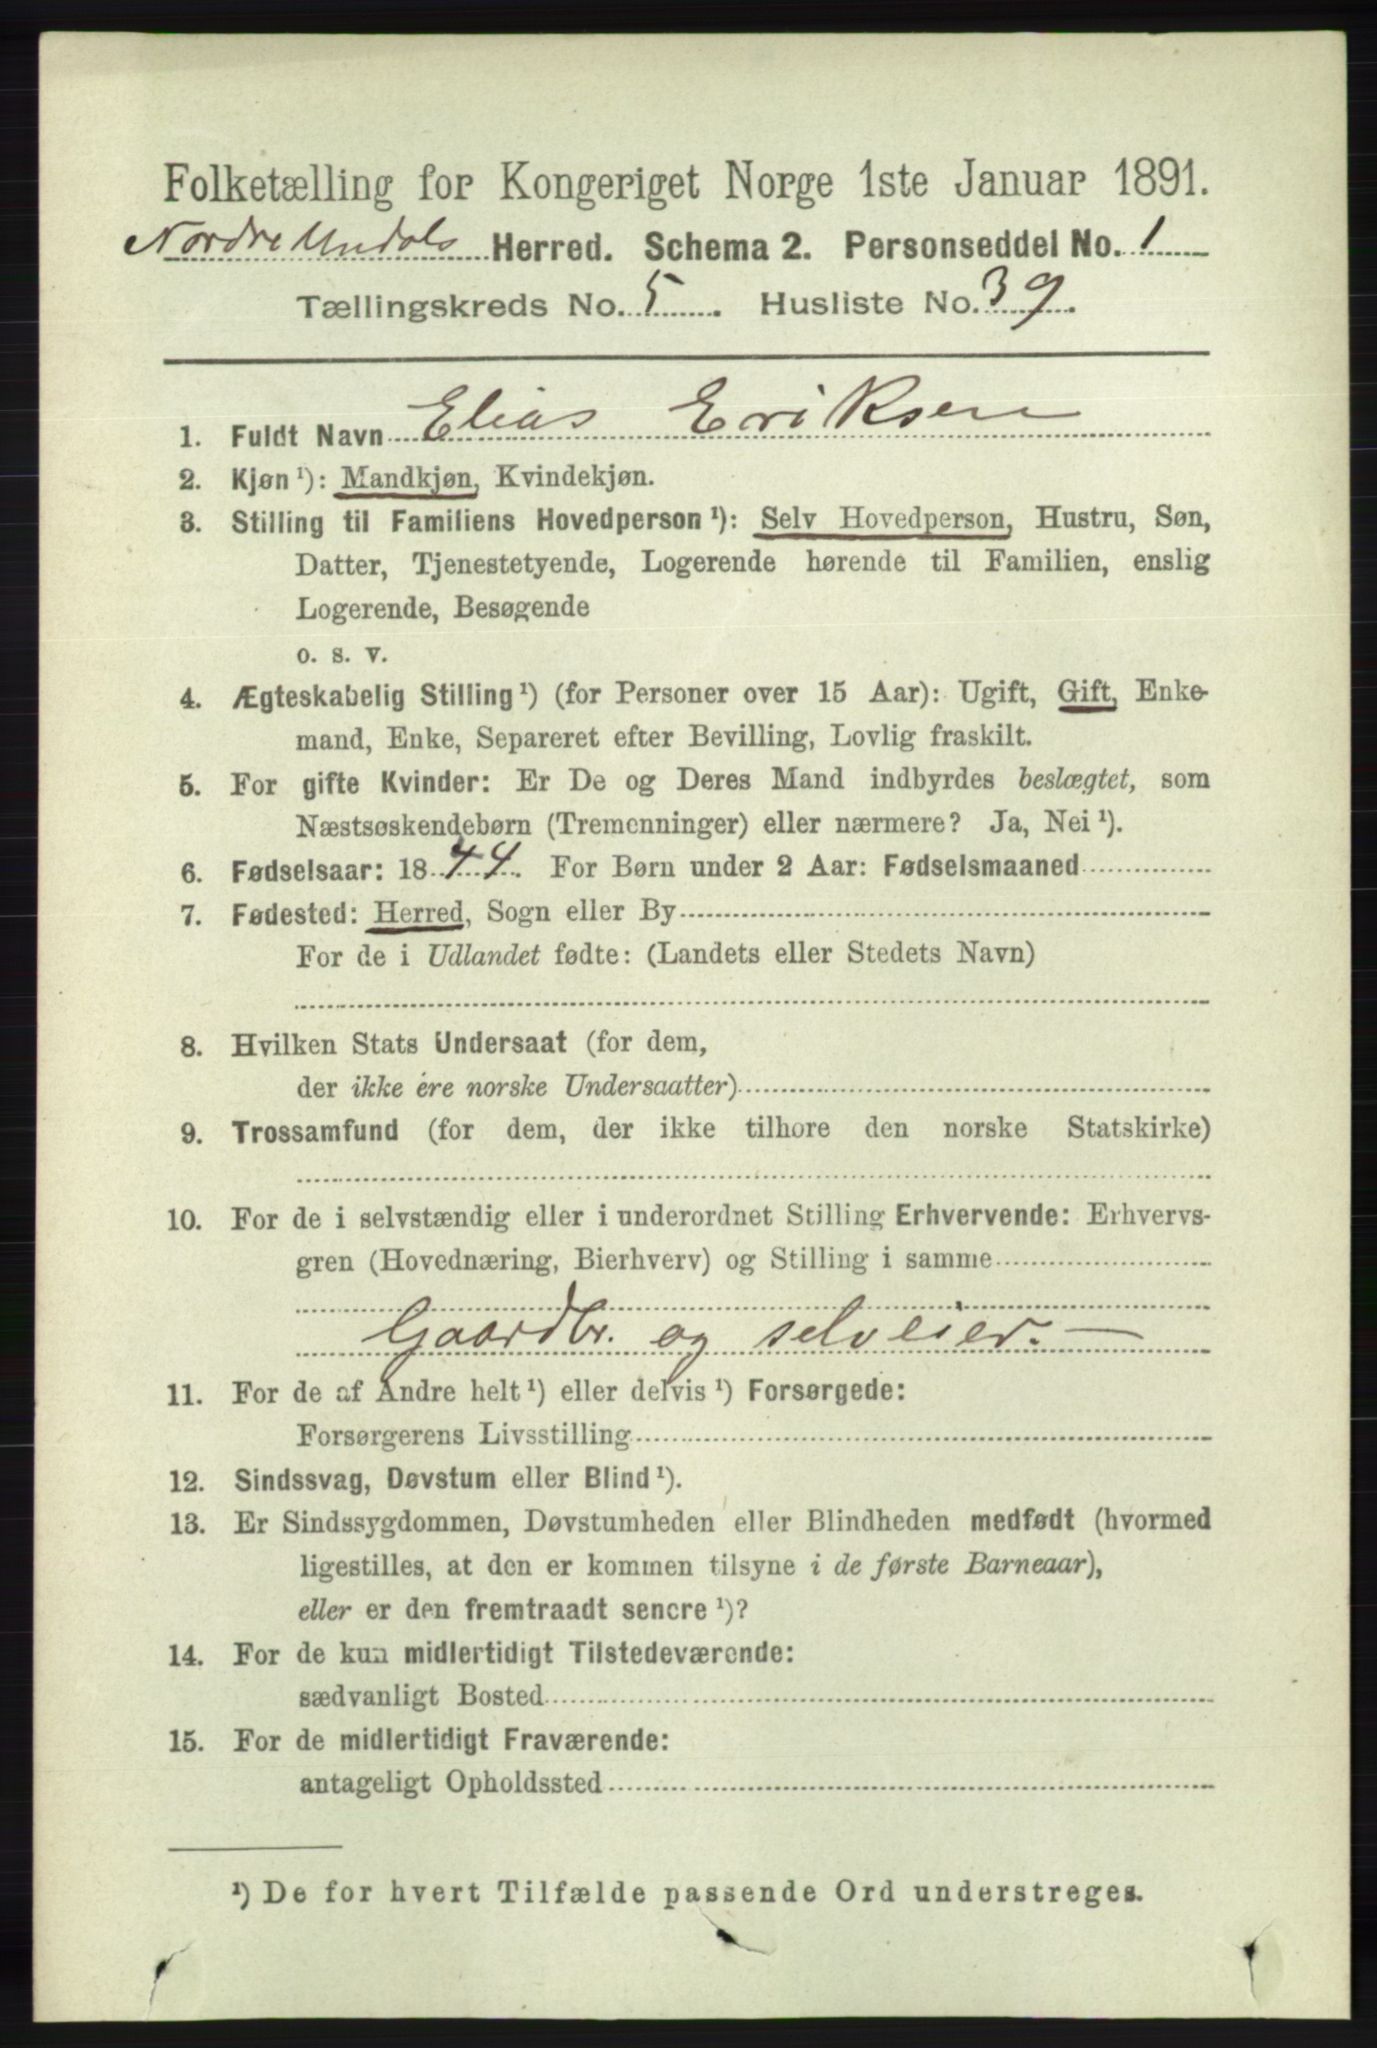 Folketælling for Kongeriget Norge 1ste Januar 1891.
Nordre Undals Herred. Schema 2. Personseddel No. 1
Tællingskreds No. 5. Husliste No. 39.
1. Fuldt Navn Elias Eriksen
2. Kjøn ¹): Mandkjøn, Kvindekjøn.
3. Stilling til Familiens Hovedperson ¹): Selv Hovedperson, Hustru, Søn,
Datter, Tjenestetyende, Logerende hørende til Familien, enslig
Logerende, Besøgende
o. s. v.
4. Ægteskabelig Stilling ¹) (for Personer over 15 Aar): Ugift, Gift, Enke-
mand, Enke, Separeret efter Bevilling, Lovlig fraskilt.
5. For gifte Kvinder: Er De og Deres Mand indbyrdes beslægtet, som
Næstsøskendebørn (Tremenninger) eller nærmere? Ja, Nei ¹).
6. Fødselsaar: 1844. For Børn under 2 Aar: Fødselsmaaned
7. Fødested: Herred, Sogn eller By
For de i Udlandet fødte: (Landets eller Stedets Navn)
8. Hvilken Stats Undersaat (for dem,
der ikke ere norske Undersaatter)
9. Trossamfund (for dem, der ikke tilhøre den norske Statskirke)
10. For de i selvstændig eller i underordnet Stilling Erhvervende: Erhvervs-
gren (Hovednæring, Bierhverv) og Stilling i samme
Gaardbr. og selveier. —
11. For de af Andre helt ¹) eller delvis ¹) Forsørgede:
Forsørgerens Livsstilling
12. Sindssvag, Døvstum eller Blind ¹).
13. Er Sindssygdommen, Døvstumheden eller Blindheden medfødt (hvormed
ligestilles, at den er kommen tilsyne i de første Barneaar),
eller er den fremtraadt senere ¹)?
14. For de kun midlertidigt Tilstedeværende:
sædvanligt Bosted
15. For de midlertidigt Fraværende:
antageligt Opholdssted
¹) De for hvert Tilfælde passende Ord understreges.